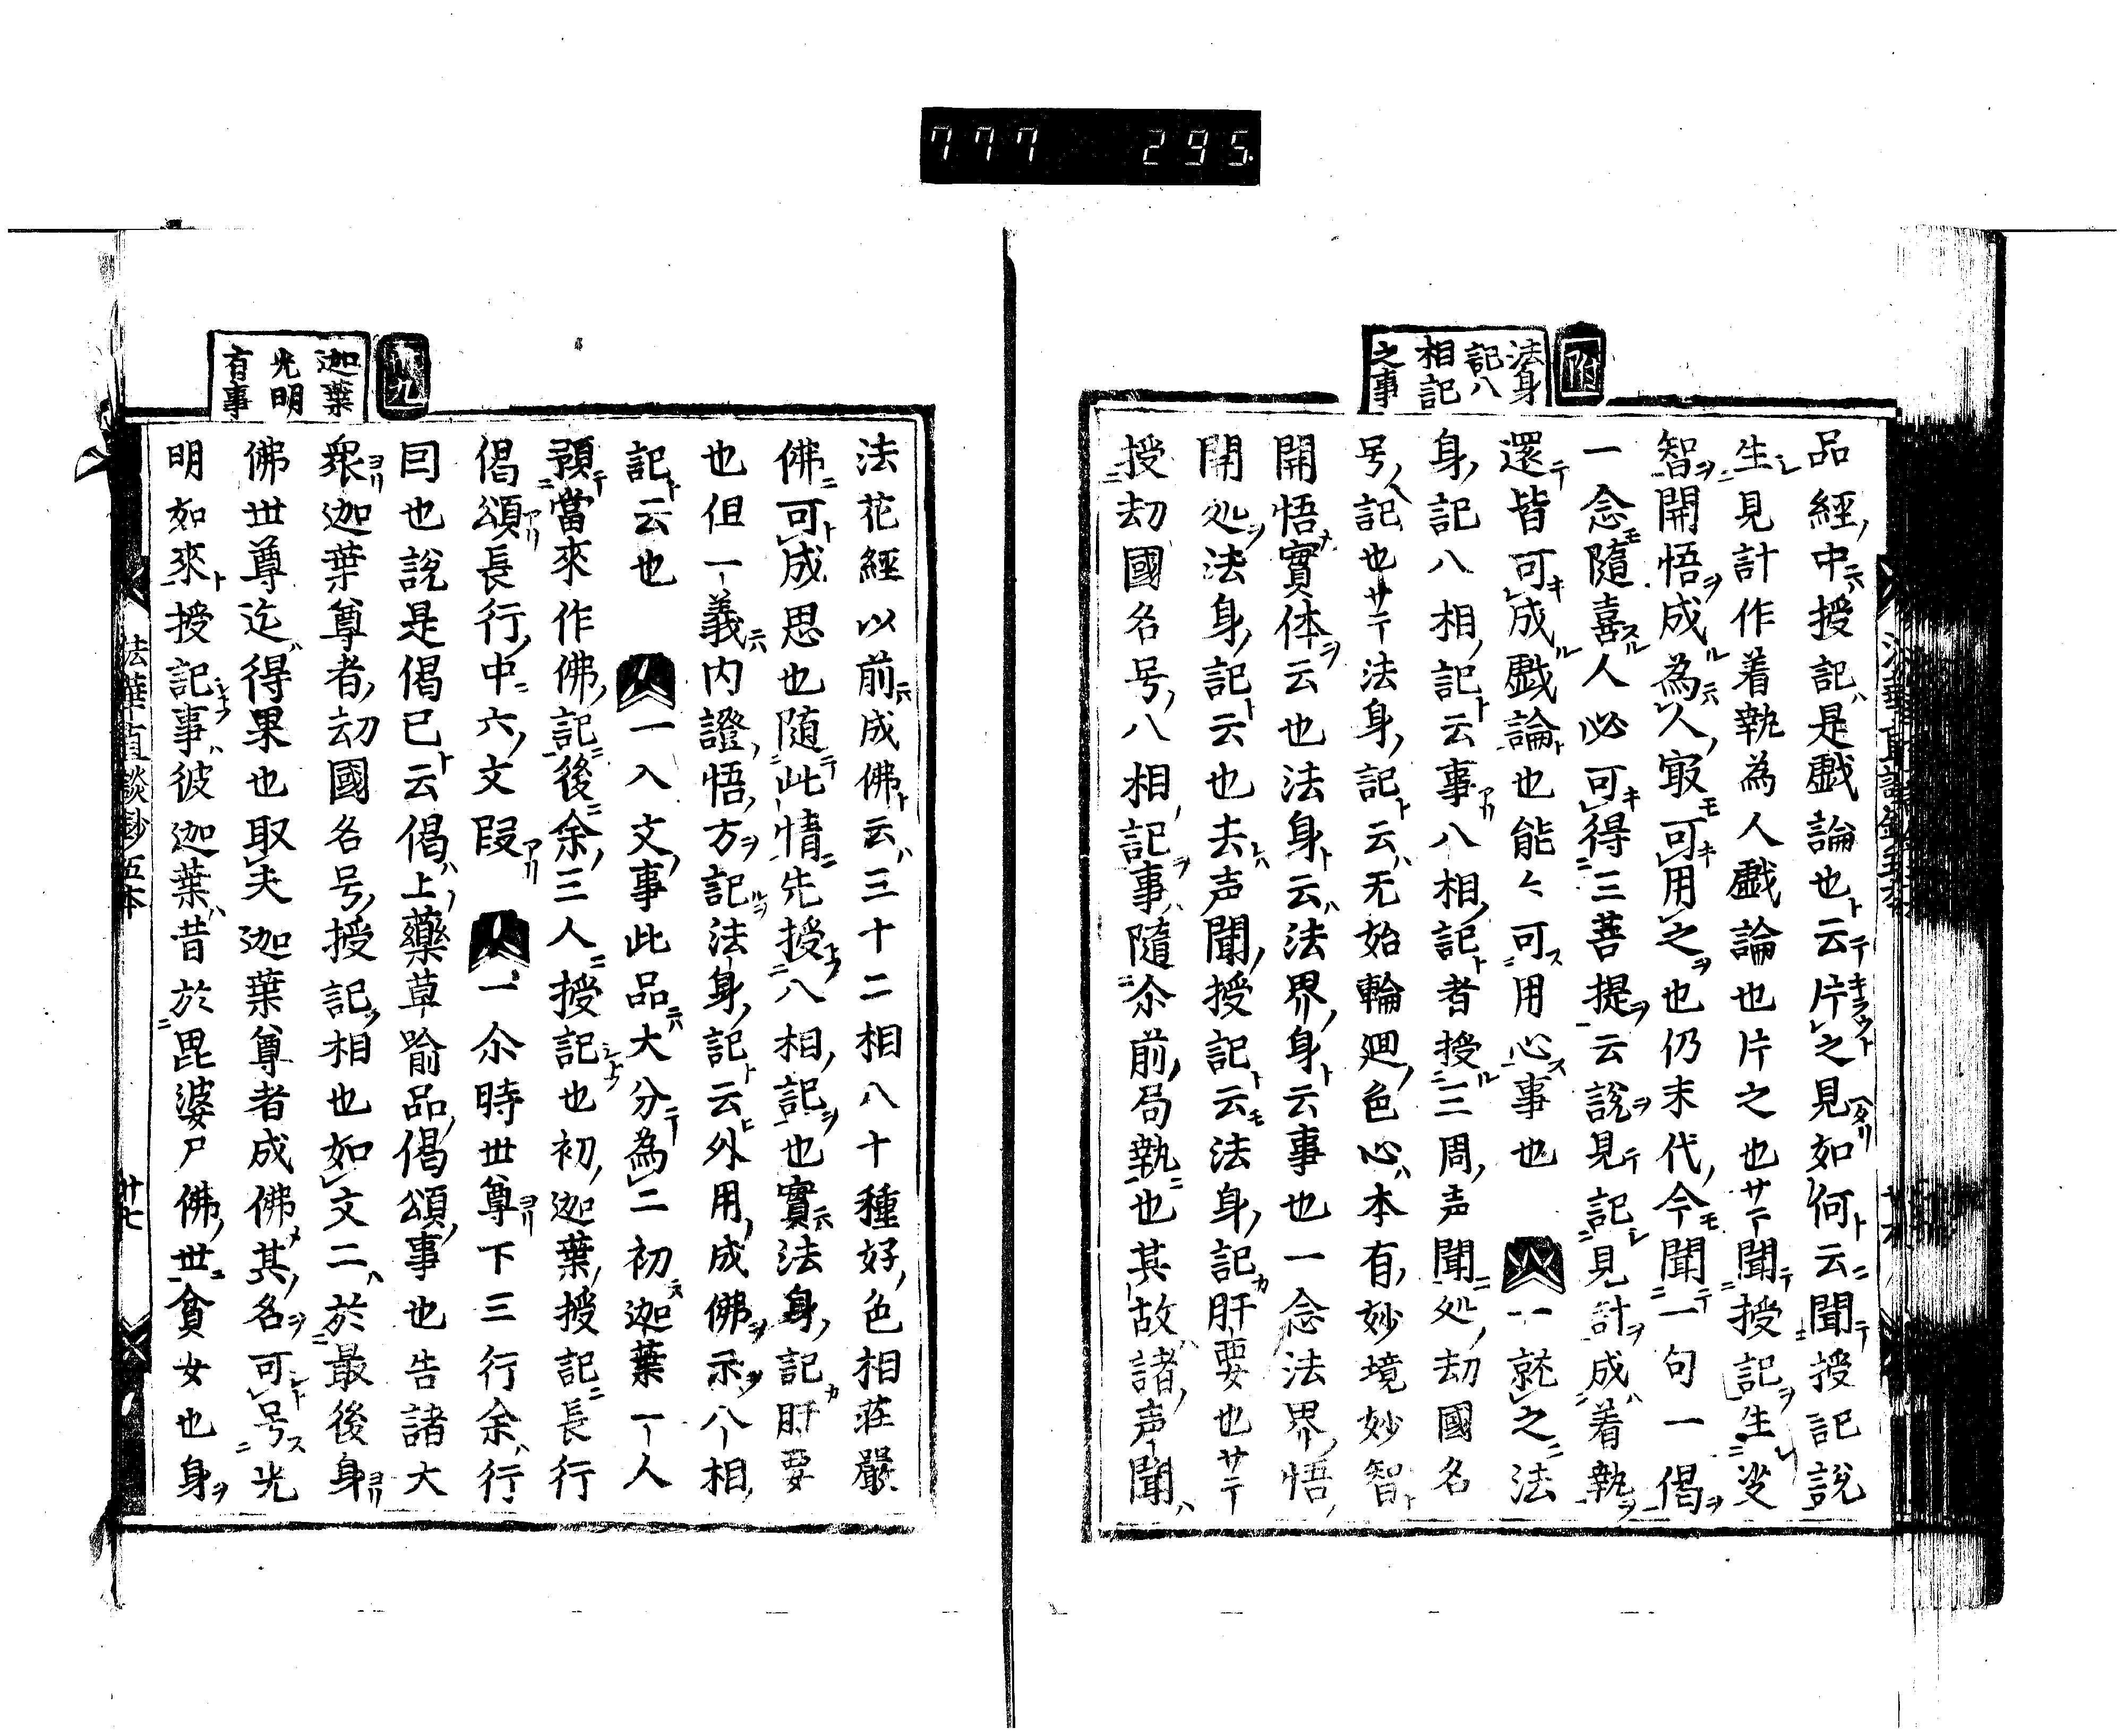 777 295
附
法身
記八
相記
之事
品經中授記是戯論也云片之見如何云聞授記説
生見計作着執為人戯論也片之也サテ聞授記生娑
智開悟成為人㝡可用之也仍末代今聞一句一偈
一念隨喜人必可得三菩提云説見記見計成着執
還皆可成戯論也能々可用心事也　一就之法
身記八相記云事八相記者授三周声聞処劫國名
号記也サテ法身記云无始輪廻色心本有妙境妙智
開悟實体云也法身云法界身云事也一念法界悟
開処法身記云也去声聞授記云法身記肝要也サテ
授劫國名号八相記事隨尒前局執也其故諸声聞
法花經以前成佛云三十二相八十種好色相莊嚴
佛可成思也随此情先授八相記也實法身記肝要
也但一義内證悟方記法身記云外用成佛示八相
記云也　一入文事此品大分為二初迦葉一人
預當來作佛記後余三人授記也初迦葉授記長行
偈頌長行中六文段　一尒時世尊下三行余行
囙也説是偈已云偈上藥草喻品偈頌事也告諸大
衆迦葉尊者劫國名号授記相也如文二於最後身
佛世尊迄得果也取夫迦葉尊者成佛其名可号光
明如來授記事彼迦葉昔於毘婆尸佛世貧女也身
廿九
迦葉
光明
有事
法華直談鈔五本
廿七